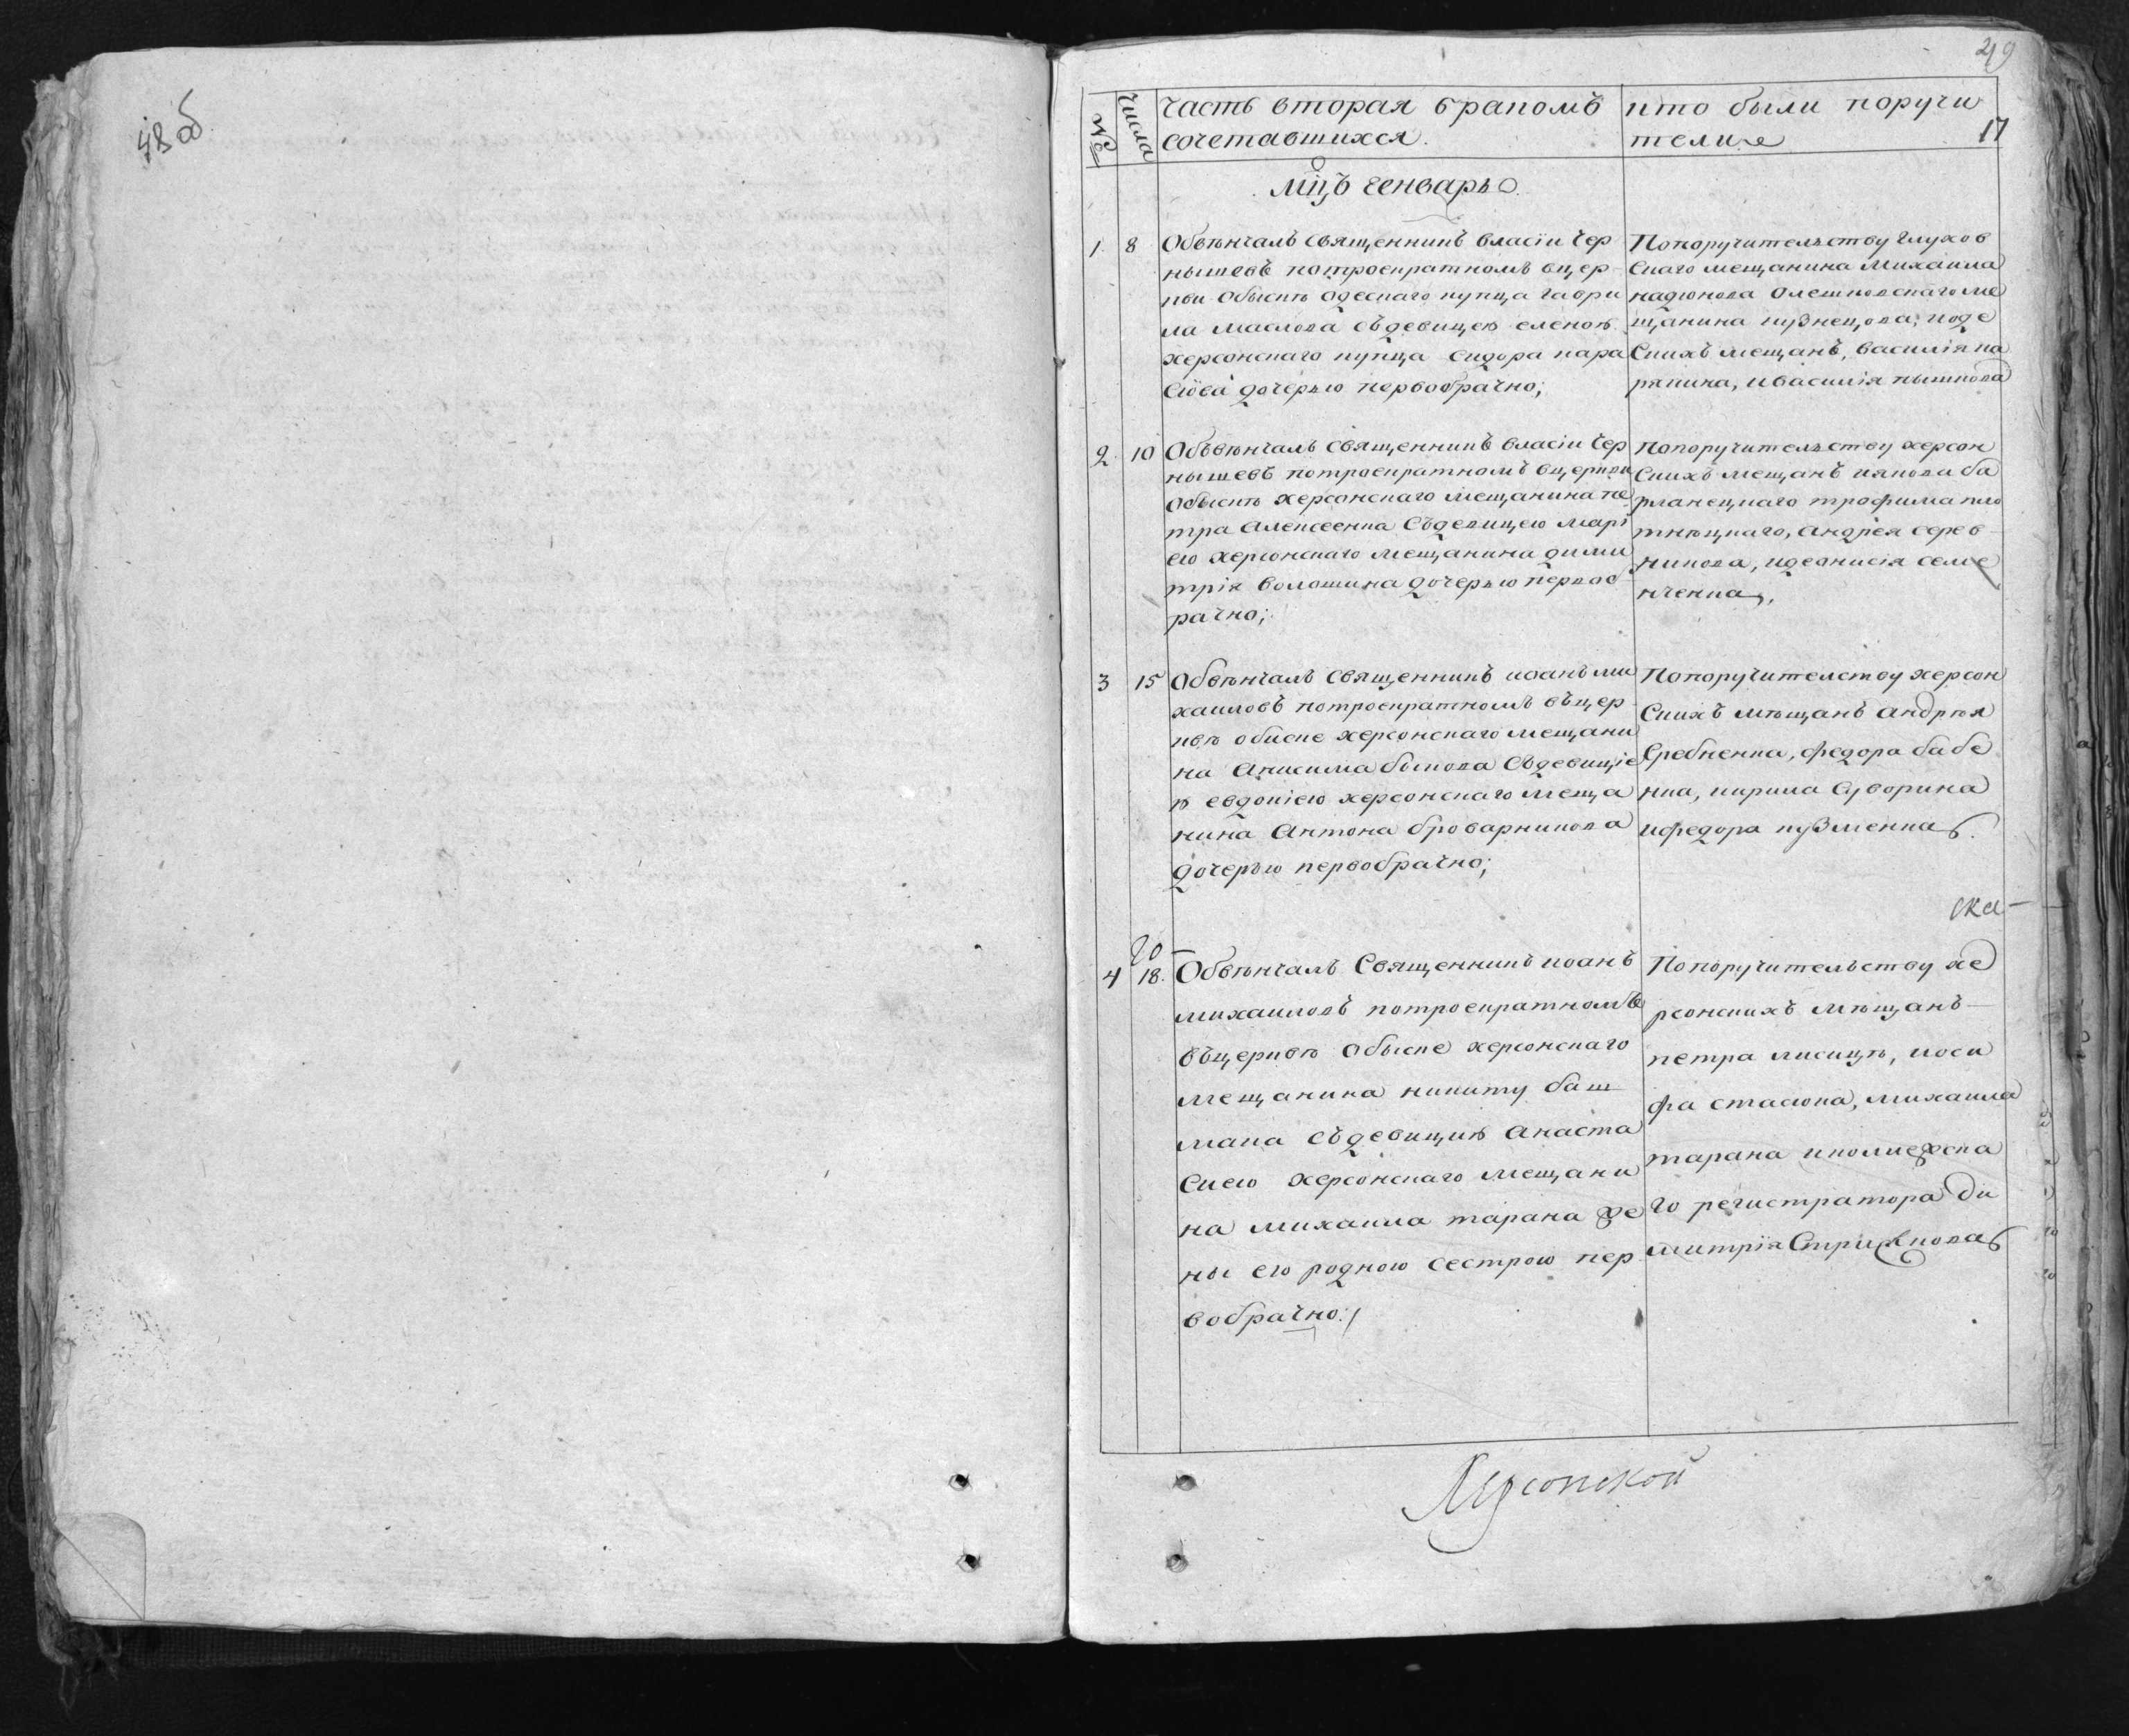 48 об
49
17
№
числа
часть вторая бракомъ
сочетавшихся.
кто были поручи
тели
мцъ генварь
1. 8 Обвѣнчалъ священникъ власіи Чер
нышевъ потроекратномъ вцер
кви обыскѣ одескаго купца гаври
ла маслова съдевицею еленою
херсонскаго купца сидора кара
сіова дочерью первобрачно;
Попоручительству глухов
скаго мещанина михаила
надюкова олешковскаго ме
щанина кузнецова, иоде
скихъ мещанъ, василія ка
рякина, ивасилія пышкова
2. 10 Объвѣнчалъ священникъ власіи Чер
нышевъ потроекратномъ вцеркви
обыскѣ херсонскаго мещанина пе
тра Алексеенка съдевицею марі
ею херсонскаго мещанина дими
трія волошина дочерью первоб
рачно;
Попоручительству херсон
скихъ мещанъ иякова ба
рланецкаго трофима пло
тнѣцкаго, андрея серев
никова, идеонисія семе
нченка,
3 15 Обвѣнчалъ священникъ иоанъ ми
хаиловъ потроекратномъ въцер
квѣ обиске херсонскаго мещани
на Анисима быкова съдевиціе
ю евдокіею херсонскаго меща
нина Антона броварникова
дочерью первобрачно;
Попоручителству херсон
скихъ мѣщанъ андрѣя
Сребненка, федора бабе
нка, кирила Суворина
ифедора кузменка
ска-
20
4 18. Обвѣнчалъ Священникъ иоанъ
михаиловъ потроекратномъ
въцерквѣ обыске херсонскаго
мещанина никиту баш
мака съдевицию анаста
сиею херсонскаго мещани
на михаила тарана же
ны его родною сестрою пер
вобрачно:
Попоручительству хе
рсонскихъ мѣщанъ
петра лисицы, иоси
фа стасюка, михаила
тарана иколежска
го регистратора ди
митрія Стрижкова
Херсонской